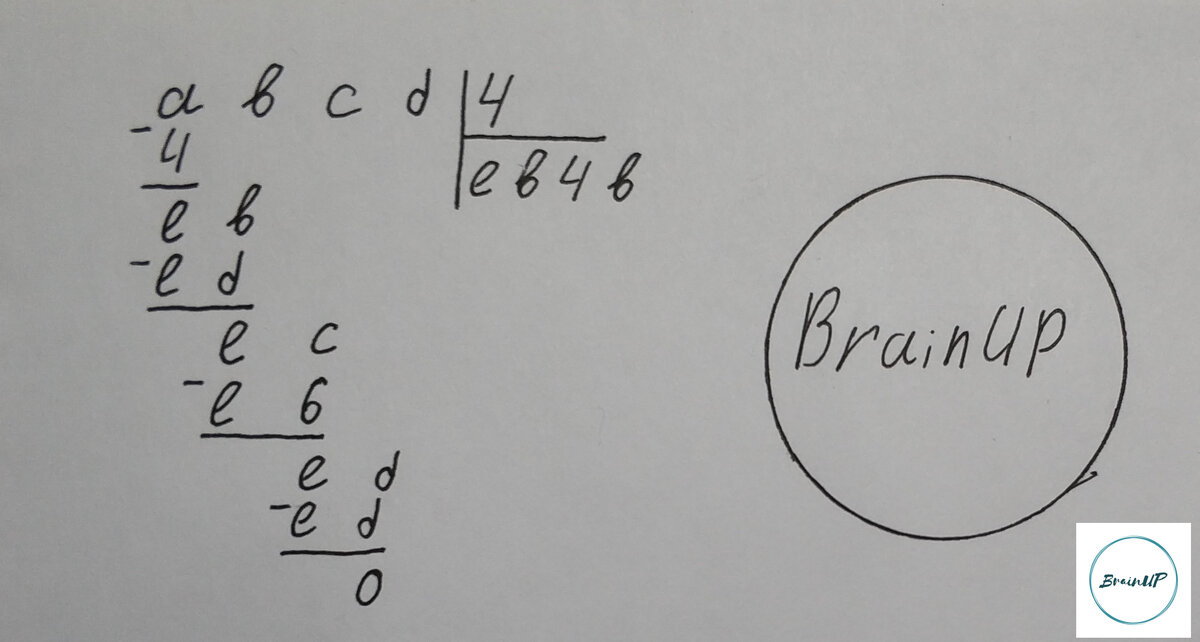 a в c d 4
- 4 e в 4 в
e в
- e d
e c
- e 6
e d
- e d
0
BrainUP
BrainUP